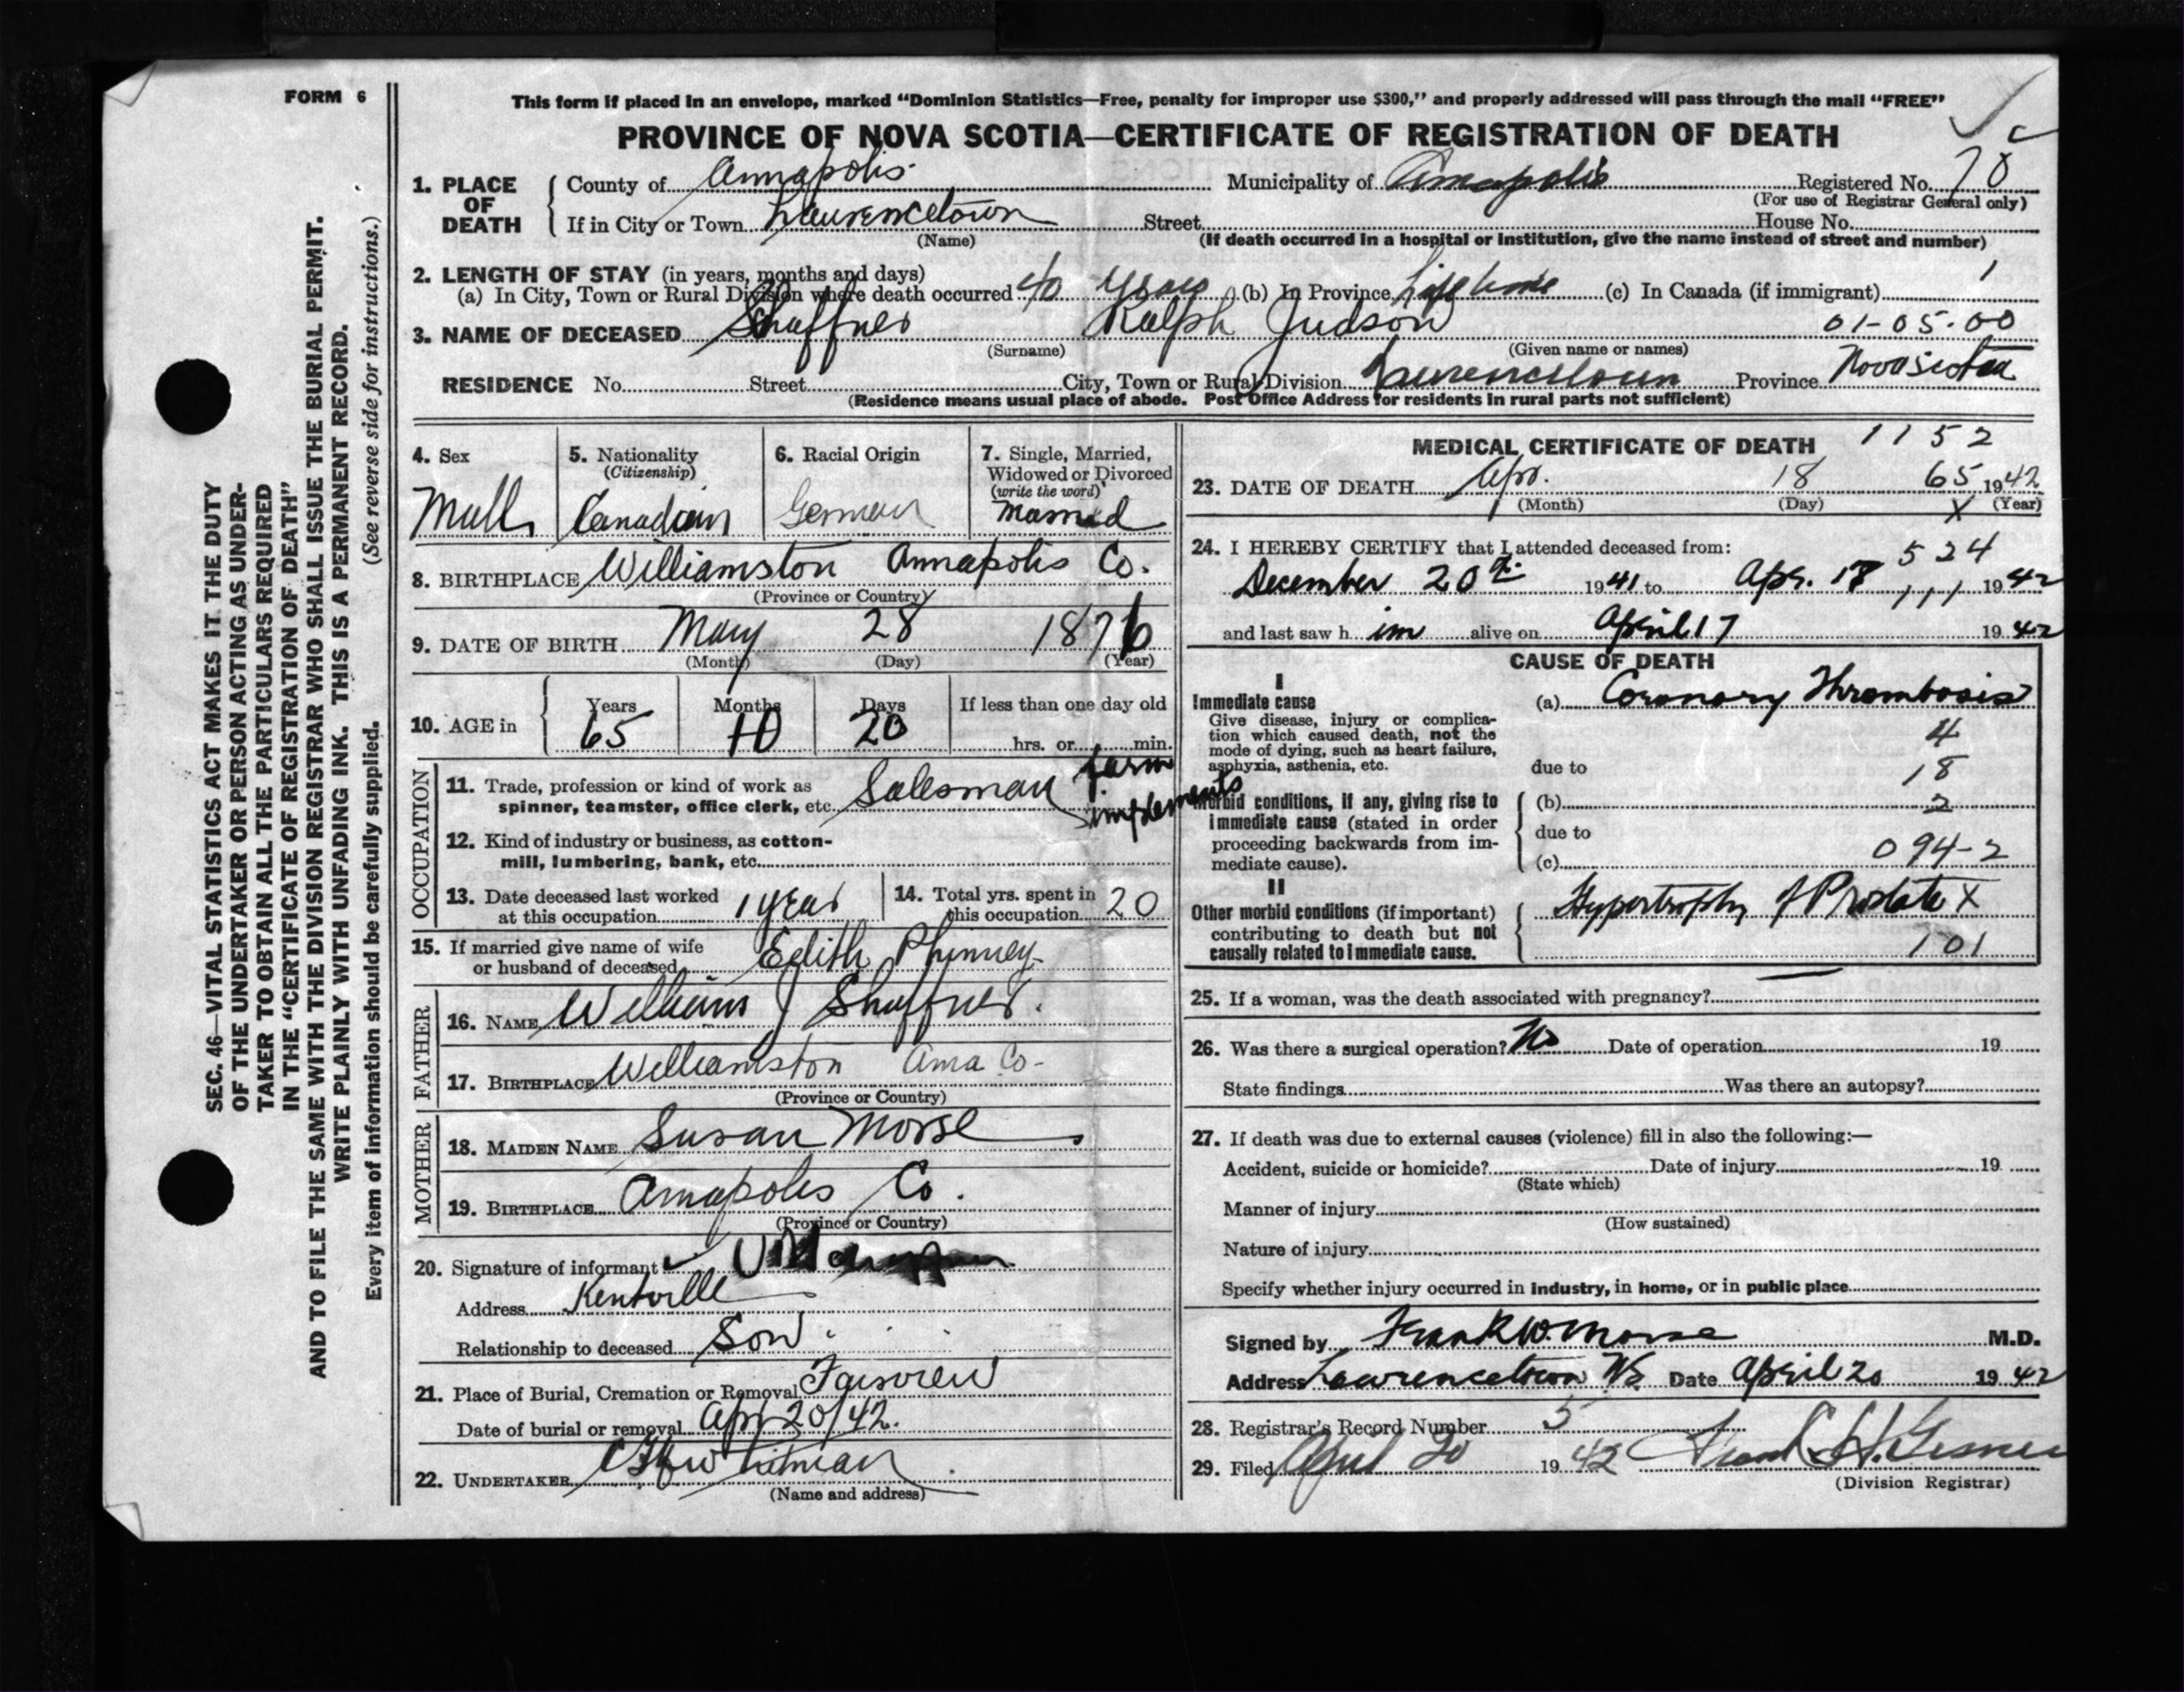 FORM 6
This form if placed in an envelope, marked “Dominion Statistics—Free, penalty for improper use $300,” and properly addressed will pass through the mail “FREE”
PROVINCE OF NOVA SCOTIA—CERTIFICATE OF REGISTRATION OF DEATH
SEC. 46—VITAL STATISTICS ACT MAKES IT THE DUTY
OF THE UNDERTAKER OR PERSON ACTING AS UNDER-
TAKER TO OBTAIN ALL THE PARTICULARS REQUIRED
IN THE “CERTIFICATE OF REGISTRATION OF DEATH”
AND TO FILE THE SAME WITH THE DIVISION REGISTRAR WHO SHALL ISSUE THE BURIAL PERMIT.
WRITE PLAINLY WITH UNFADING INK. THIS IS A PERMANENT RECORD.
Every item of information should be carefully supplied. (See reverse side for instructions.)
1. PLACE OF DEATH County of Annapolis Municipality of Annapolis Registered No. 78
(For use of Registrar General only)
If in City or Town Lawrencetown Street House No.
(Name) (If death occurred in a hospital or institution, give the name instead of street and number)
2. LENGTH OF STAY (in years, months and days)
(a) In City, Town or Rural Division where death occurred 40 years (b) In Province Life time (c) In Canada (if immigrant) 1
3. NAME OF DECEASED Shaffner Ralph Judson 01-05-00
(Surname) (Given name or names)
RESIDENCE No. Street City, Town or Rural Division Lawrencetown Province Nova Scotia
(Residence means usual place of abode. Post Office Address for residents in rural parts not sufficient)
4. Sex 5. Nationality 6. Racial Origin 7. Single, Married,
(Citizenship) Widowed or Divorced
(write the word)
Male Canadian German Married
8. BIRTHPLACE Williamston Annapolis Co.
(Province or Country)
9. DATE OF BIRTH May 28 1876
(Month) (Day) (Year)
10. AGE in Years Months Days If less than one day old
65 10 20 hrs. or min.
OCCUPATION
11. Trade, profession or kind of work as
spinner, teamster, office clerk, etc. Salesman farm
implements
12. Kind of industry or business, as cotton-
mill, lumbering, bank, etc.
13. Date deceased last worked 14. Total yrs. spent in
at this occupation 1 year this occupation 20
15. If married give name of wife
or husband of deceased Edith Phinney
FATHER
16. NAME William J Shaffner.
17. BIRTHPLACE Williamston Anna Co-
(Province or Country)
MOTHER
18. MAIDEN NAME Susan Morse
19. BIRTHPLACE Annapolis Co.
(Province or Country)
20. Signature of informant
Address Kentville
Relationship to deceased Son
21. Place of Burial, Cremation or Removal Fairview
Date of burial or removal Apr 20/42.
22. UNDERTAKER Whitman
(Name and address)
MEDICAL CERTIFICATE OF DEATH 1152
23. DATE OF DEATH Apr. 18 65 1942
(Month) (Day) X (Year)
24. I HEREBY CERTIFY that I attended deceased from: 524
December 20th 1941 to Apr. 18 111 1942
and last saw h im alive on April 17 1942
CAUSE OF DEATH
I
Immediate cause (a) Coronary Thrombosis
Give disease, injury or complica-
tion which caused death, not the 4
mode of dying, such as heart failure,
asphyxia, asthenia, etc. due to 18
Morbid conditions, if any, giving rise to (b) 2
immediate cause (stated in order
proceeding backwards from im- due to
mediate cause). (c) 094-2
II
Other morbid conditions (if important) Hypertrophy of Prostate X
contributing to death but not
causally related to immediate cause. 101
25. If a woman, was the death associated with pregnancy? —
26. Was there a surgical operation? No Date of operation 19
State findings Was there an autopsy?
27. If death was due to external causes (violence) fill in also the following:—
Accident, suicide or homicide? Date of injury 19
(State which)
Manner of injury
(How sustained)
Nature of injury
Specify whether injury occurred in industry, in home, or in public place
Signed by Frank W. Morse M.D.
Address Lawrencetown N.S. Date April 20 1942
28. Registrar's Record Number 5
29. Filed April 20 1942 Frank H. Gesner
(Division Registrar)